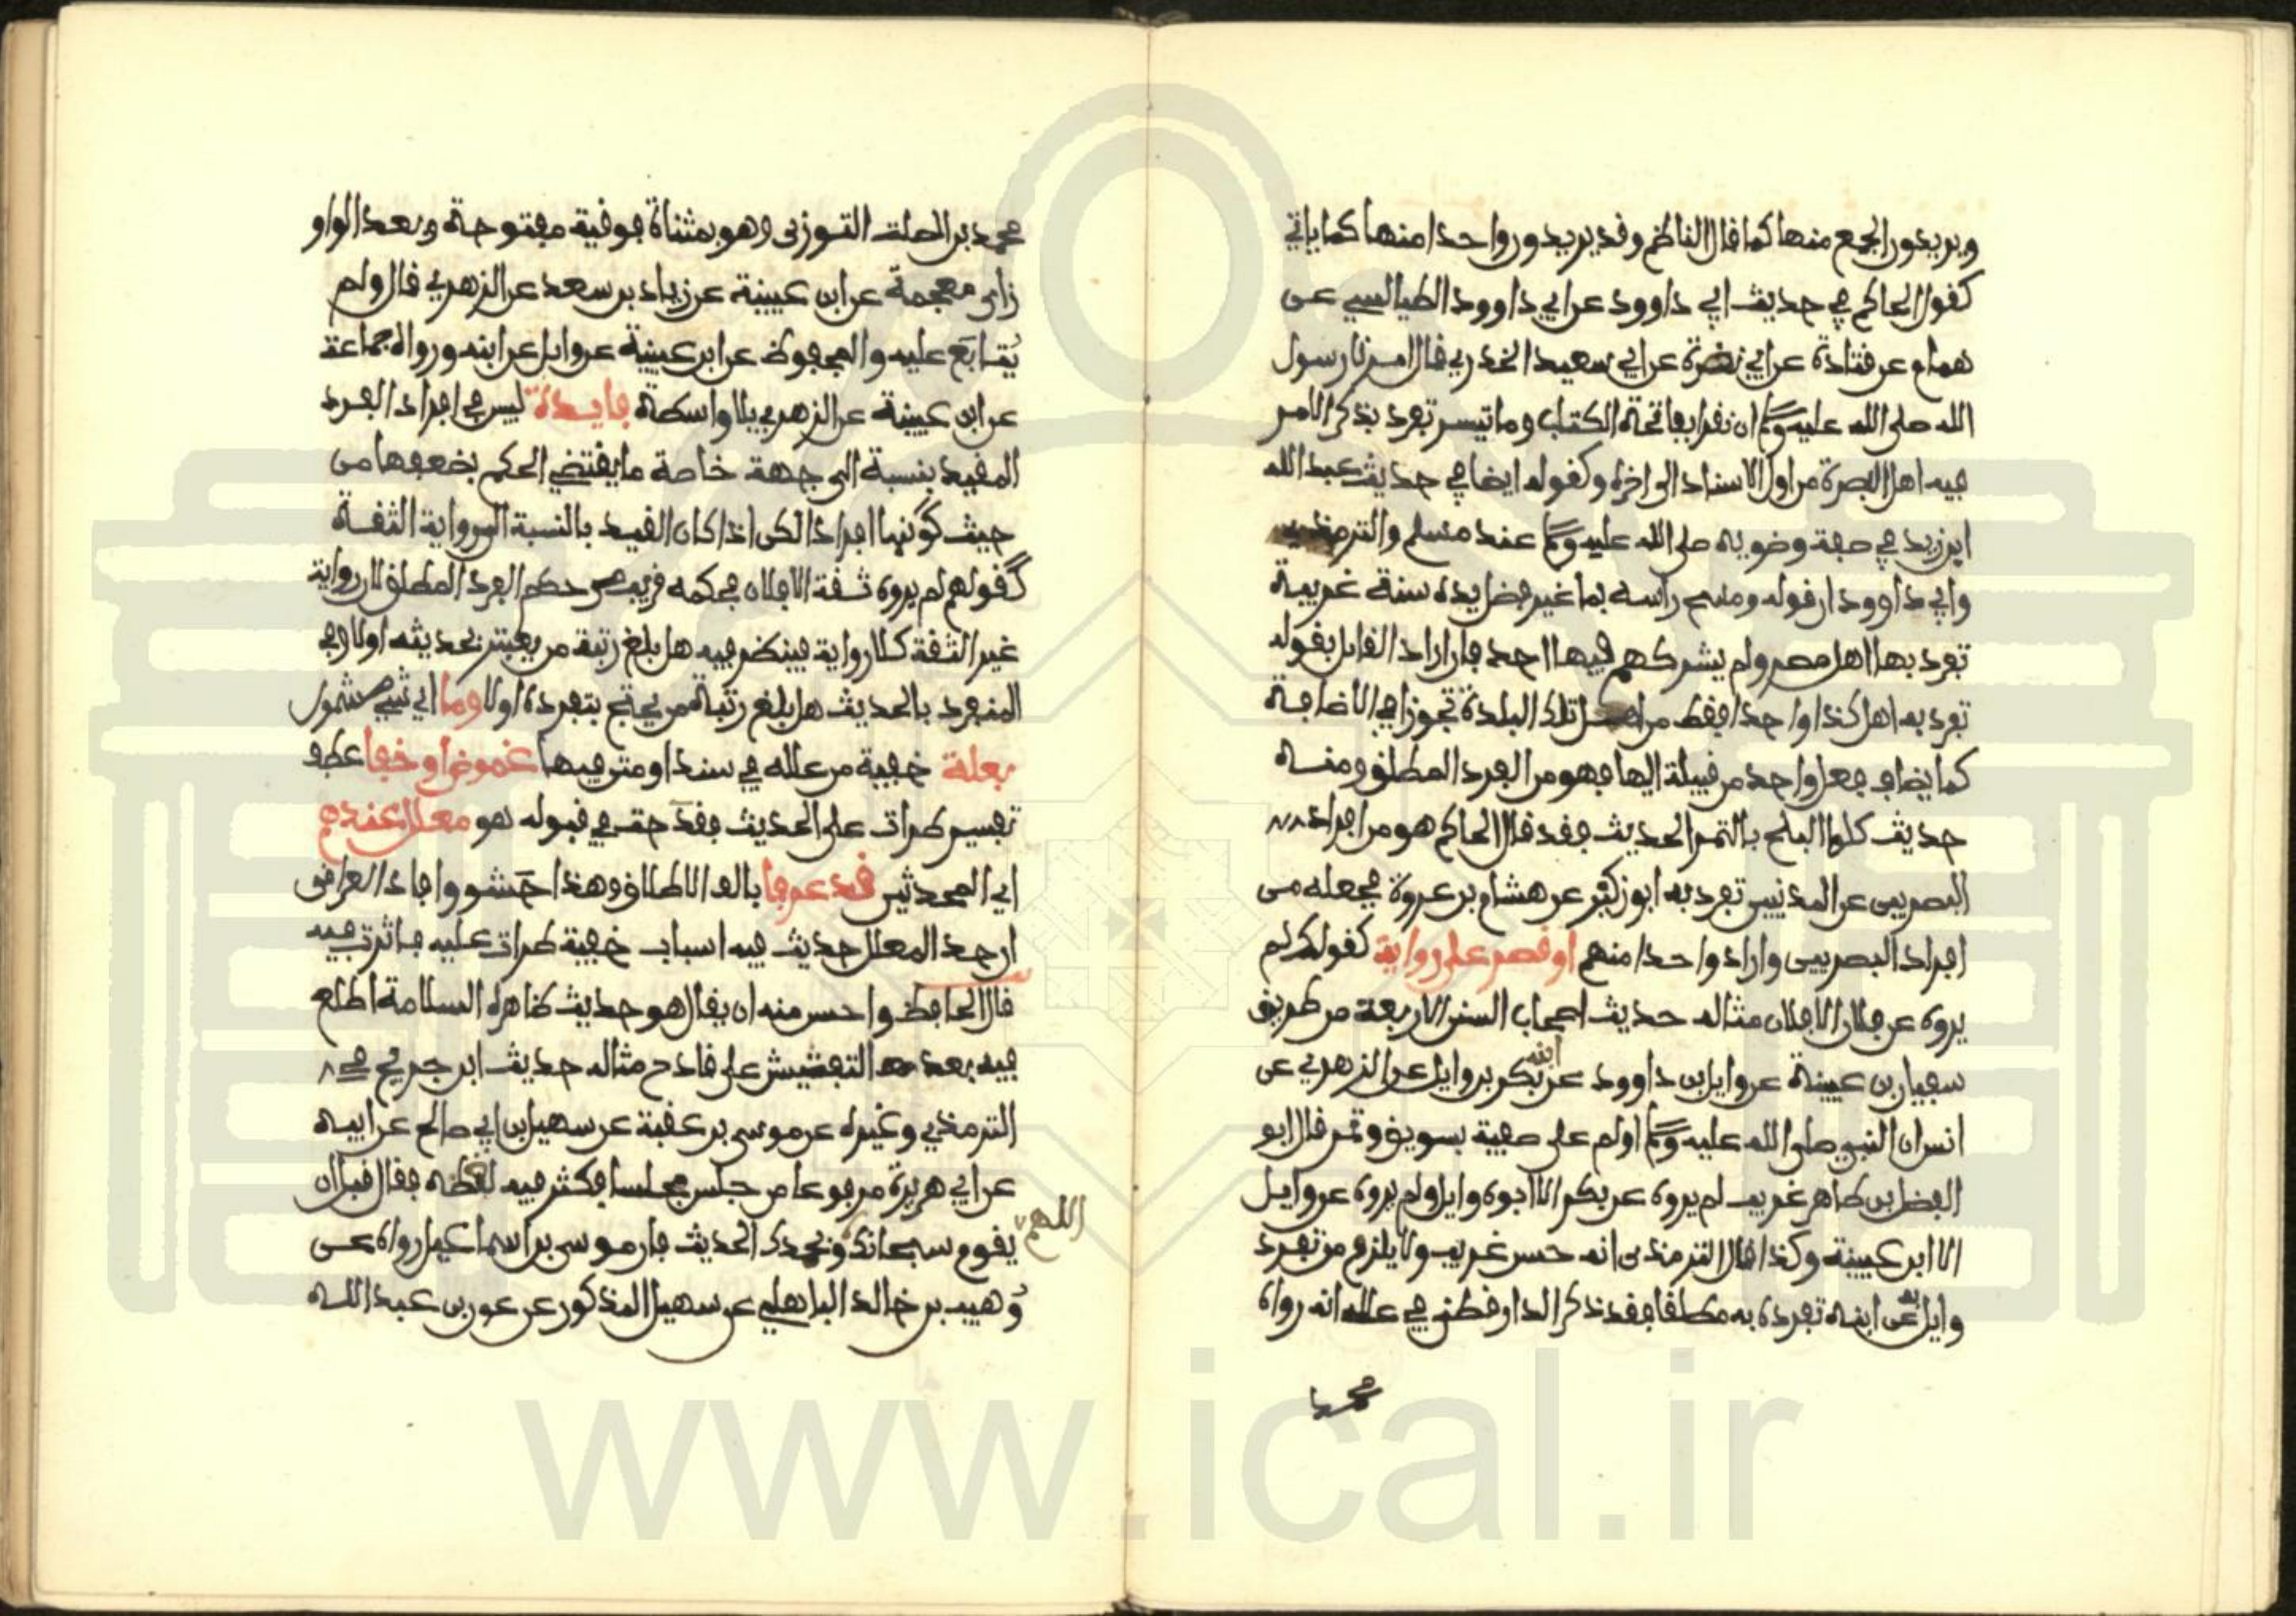 ويريدون الجمع منها كما قال الناظم وقد يريدون واحدا منها كما ياتي
كقول الحاكم في حديث ابي داوود عن ابي داوود الطيالسي عن
همام عن قتادة عن ابي نضرة عن ابي سعيد الخدري قال امرنا رسول
الله صلى الله عليه وسلم ان نقرا بفاتحة الكتاب وما تيسر تفرد بذكر الامر
فيه اهل البصرة من اول الاسناد الى اخره وكقوله ايضا في حديث عبد الله
ابن زيد في صفة وضوءه صلى الله عليه وسلم عند مسلم والترمذي
وابي داوود ان قوله ومسح راسه بما غير فضل يده سنة غريبة
تفرد بها اهل مصر ولم يشركهم فيها احد فان اراد القايل بقوله
تفرد به اهل كذا واحدا فقط من اهل تلك البلدة تجوز في الاضافة
كما يضاف فعل واحد من قبيلة اليها فهو من الفرد المطلق ومنه
حديث كلوا البلح بالتمر الحديث فقد قال الحاكم هو من افراد
البصريين عن المدنيين تفرد به ابو زكير عن هشام بن عروة فجعله من
افراد البصريين واراد واحدا منهم او قصر على رواية كقولك لم
يروه عن فلان الا فلان مثاله حديث اصحاب السنن الاربعة من طريق
سفيان بن عيينة عن وايل بن داوود عن ابنه بكر بن وايل عن الزهري عن
انس ان النبي صلى الله عليه وسلم اولم على صفية بسويق وتمر قال ابو
الفضل بن طاهر غريب لم يروه عن بكر الا ابوه وايل ولم يروه عن وايل
الا ابن عيينة وكذا قال الترمذي انه حسن غريب ولا يلزم من تفرد
وايل به عن ابنه تفرده به مطلقا فقد ذكر الدارقطني في علله انه رواه
محمد
محمد بن الصلت التوزي وهو بمثناة فوقية مفتوحة وبعد الواو
زاي معجمة عن ابن عيينة عن زياد بن سعد عن الزهري قال ولم
يُتابَع عليه والمحفوظ عن ابن عيينة عن وايل عن ابنه ورواه جماعة
عن ابن عيينة عن الزهري بلا واسطة فايدة ليس في افراد الفرد
المقيد بنسبة الى جهة خاصة ما يقتضي الحكم بضعفها من
حيث كونها افرادا لكن اذا كان القيد بالنسبة لرواية الثقة
كقولهم لم يروه ثقة الا فلان فحكمه قريب من حكم الفرد المطلق لان رواية
غير الثقة كلا رواية فينظر فيه هل بلغ رتبة من يعتبر بحديثه اولا وفي
المنفرد بالحديث هل بلغ رتبة من يحتج بتفرده اولا وما اي شيء مشمول
بعلة خفية من علله في سند او متن فيها غموض او خفا عطف
تفسير طرات على الحديث فقدحت في قبوله هو معلل عندهم
اي المحدثين قد عرفا بالف الاطلاق وهذا حشو وافاد العراقي
ان حد المعلل حديث فيه اسباب خفية طرات عليه فاثرت فيه
قال الحافظ واحسن منه ان يقال هو حديث ظاهره السلامة اطلع
فيه بعد التفتيش على قادح مثاله حديث ابن جريج في
الترمذي وغيره عن موسى بن عقبة عن سهيل بن ابي صالح عن ابيه
عن ابي هريرة مرفوعا من جلس مجلسا فكثر فيه لغطه فقال قبل ان
يقوم سبحانك اللهم وبحمدك الحديث فان موسى بن اسماعيل رواه عن
وُهيب بن خالد الباهلي عن سهيل المذكور عن عون بن عبد الله
www.ical.ir